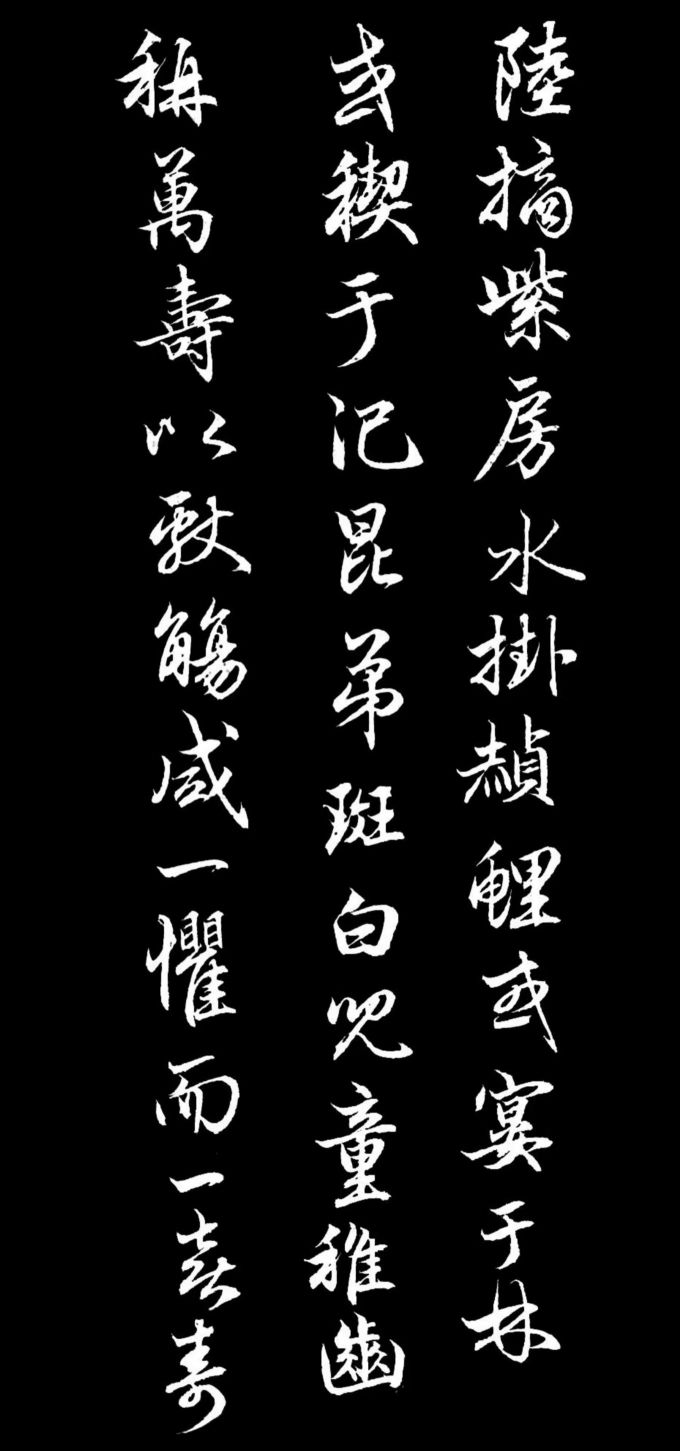 陸摘紫房水掛赬鯉或宴于林
或禊于汜昆弟斑白兒童稚齒
稱萬壽以獻觴咸一懼而一喜壽